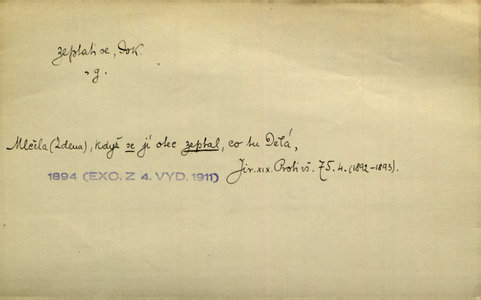 zeptati se, dok.
s g.
Mlčela (Zdena), když se jí otec zeptal, co tu dělá,
1894 (EXC. Z 4. VYD. 1911) Jir. XIX. Proti vš. 75. 4. (1892-1893).